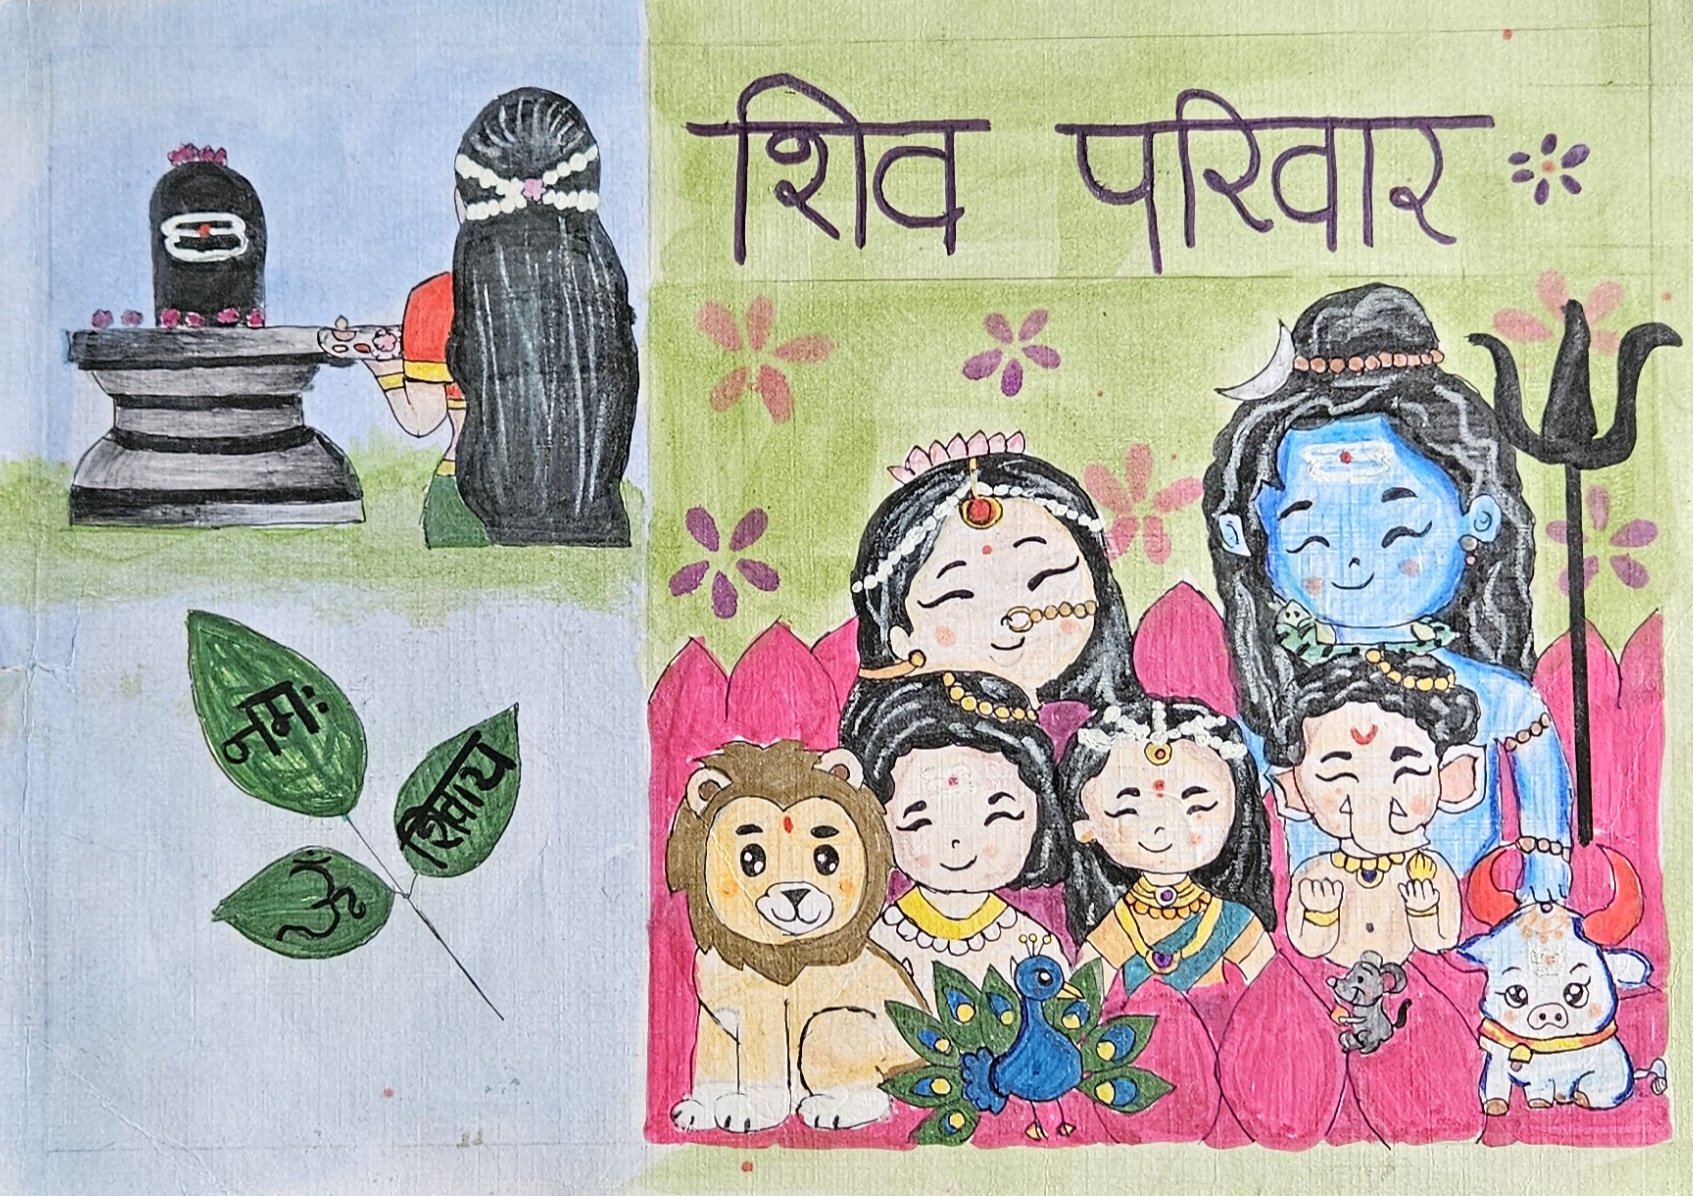 शिव परिवार
ॐ
नमः
शिवाय